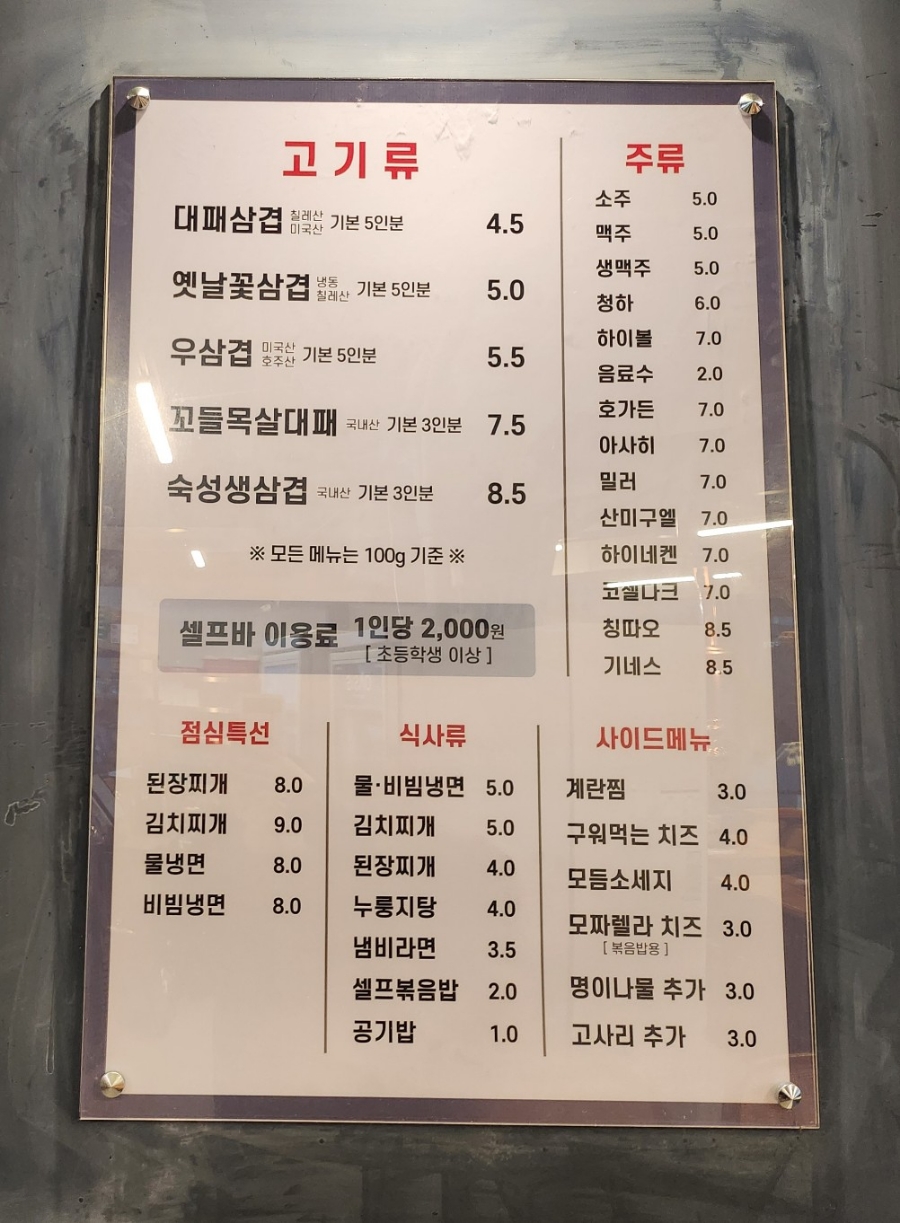 고기류
대패삼겹 칠레산 미국산 기본 5인분 4.5
옛날꽃삼겹 냉동 칠레산 기본 5인분 5.0
우삼겹 미국산 호주산 기본 5인분 5.5
꼬들목살대패 국내산 기본 3인분 7.5
숙성생삼겹 국내산 기본 3인분 8.5
※ 모든 메뉴는 100g 기준 ※
셀프바 이용료 1인당 2,000원
[ 초등학생 이상 ]
주류
소주 5.0
맥주 5.0
생맥주 5.0
청하 6.0
하이볼 7.0
음료수 2.0
호가든 7.0
아사히 7.0
밀러 7.0
산미구엘 7.0
하이네켄 7.0
코젤다크 7.0
칭따오 8.5
기네스 8.5
점심특선
된장찌개 8.0
김치찌개 9.0
물냉면 8.0
비빔냉면 8.0
식사류
물·비빔냉면 5.0
김치찌개 5.0
된장찌개 4.0
누룽지탕 4.0
냄비라면 3.5
셀프볶음밥 2.0
공기밥 1.0
사이드메뉴
계란찜 3.0
구워먹는 치즈 4.0
모듬소세지 4.0
모짜렐라 치즈 3.0
[ 볶음밥용 ]
명이나물 추가 3.0
고사리 추가 3.0